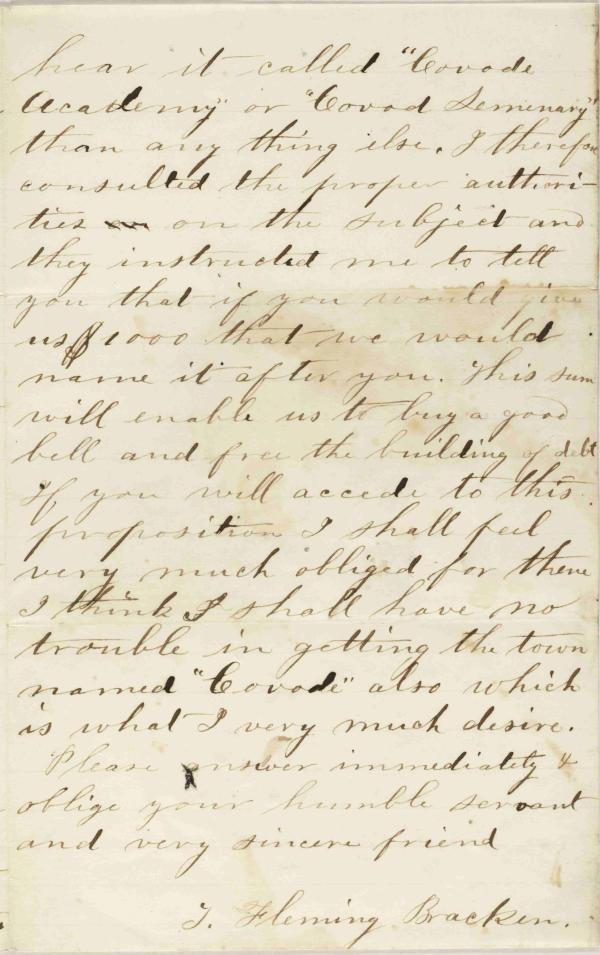 hear it called "Covode
Academy" or "Covod Semenary"
than any thing else. I therefore
consulted the proper authori-
ties on the subject and
they instructed me to tell
you that if you would give
us $1000 that we would
name it after you. This sum
will enable us to buy a good
bell and free the building of debt
If you will accede to this
proposition I shall feel
very much obliged for there
I think I shall have no
trouble in getting the town
named "Covode" also which
is what I very much desire.
Please answer immediately &
oblige your humble servant
and very sincere friend
T. Fleming Bracken.